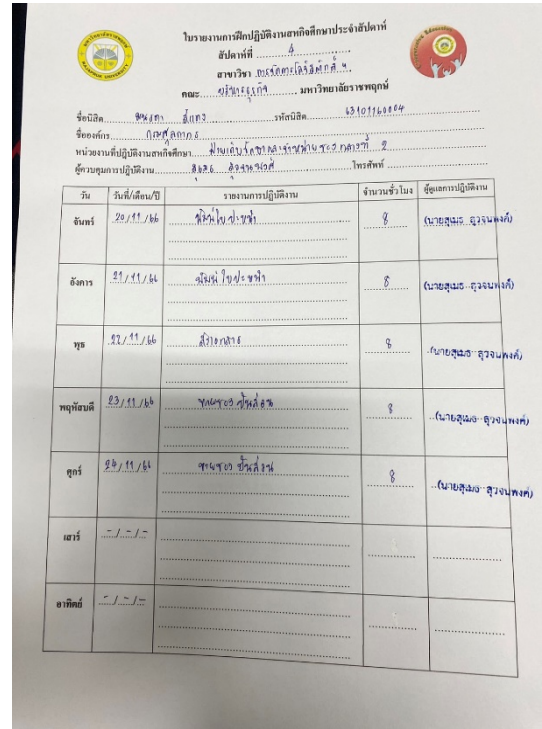 ใบรายงานการฝึกปฏิบัติงานสหกิจศึกษาประจำสัปดาห์
สัปดาห์ที่ 4
สาขาวิชา การจัดการโลจิสติกส์ ฯ
คณะ บริหารธุรกิจ มหาวิทยาลัยราชพฤกษ์
ชื่อนิสิต รหัสนิสิต 63101160004
ชื่อองค์กร กรมศุลกากร
หน่วยงานที่ปฏิบัติงานสหกิจศึกษา ฝ่ายเก็บรักษาและจำหน่ายของกลางที่ 2
ผู้ควบคุมการปฏิบัติงาน สุเมธ สุวจนพงศ์ โทรศัพท์
วัน วันที่/เดือน/ปี รายงานการปฏิบัติงาน จำนวนชั่วโมง ผู้ดูแลการปฏิบัติงาน
จันทร์ 20/11/66 พิมพ์ใบปะหน้า 8 (นายสุเมธ สุวจนพงศ์)
อังคาร 21/11/66 พิมพ์ใบปะหน้า 8 (นายสุเมธ สุวจนพงศ์)
พุธ 22/11/66 ส่งเอกสาร 8 (นายสุเมธ สุวจนพงศ์)
พฤหัสบดี 23/11/66 8 (นายสุเมธ สุวจนพงศ์)
ศุกร์ 24/11/66 8 (นายสุเมธ สุวจนพงศ์)
เสาร์ -/-/-
อาทิตย์ -/-/-